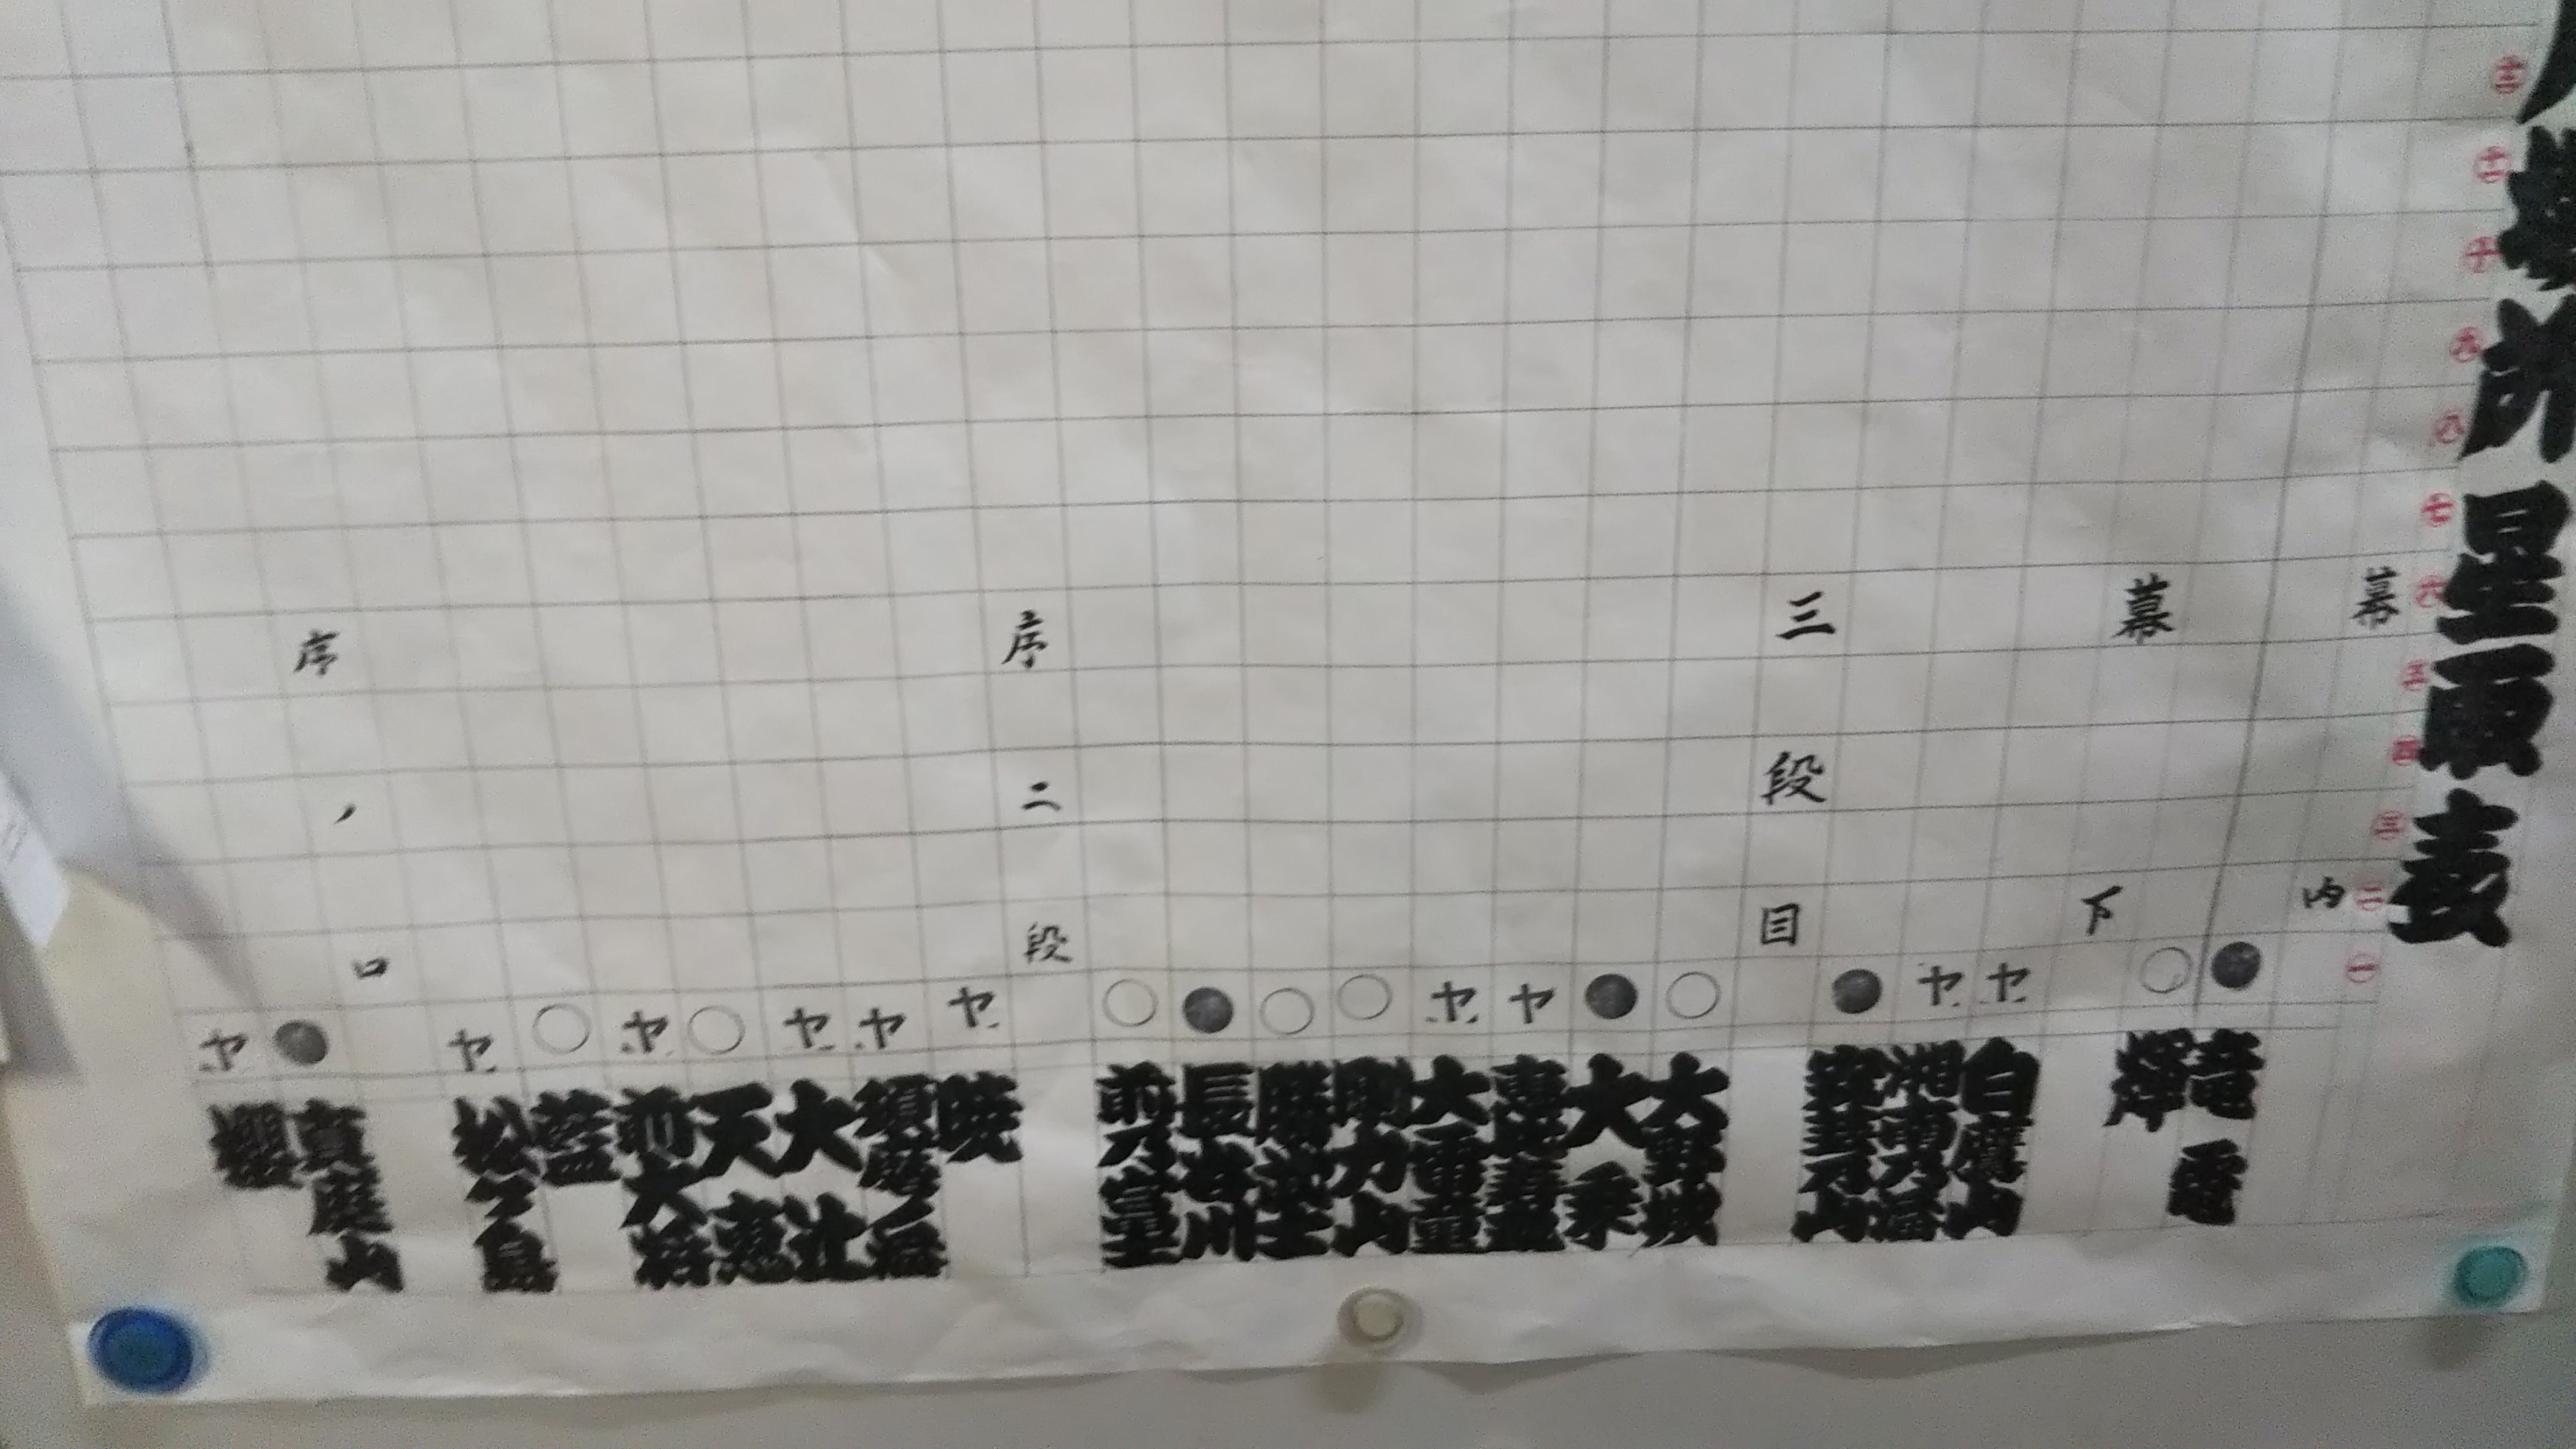 場所星取表
十二
十一
十
九
八
七
六
五
四
三
二
一
幕内
● 竜電
○ 輝
幕下
ヤ 白鷹山
ヤ 湘南乃海
●
三段目
○ 大野城
● 大乗
ヤ
ヤ 大雷童
○ 剛力山
○ 勝武士
● 長谷川
○ 前乃富士
序二段
ヤ 暁
ヤ 須磨ノ海
ヤ 大辻
○ 天恵
ヤ 前大将
○ 藍
ヤ 松ケ島
序ノ口
● 真庭山
ヤ 櫻